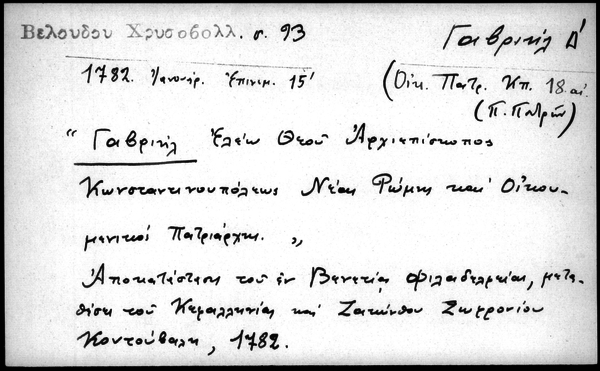 Βελουδου Χρυσοβολλ. σ. 93
Γαβριήλ Δ'
1782. Ἰανουάρ. Ἐπινεμ. 15'
(Οἰκ. Πατρ. Κπ. 18.αἰ.
(Π. Πατρῶν)
" Γαβριήλ Ἐλέῳ Θεοῦ Ἀρχιεπίσκοπος
Κωνσταντινουπόλεως Νέας Ῥώμης καί Οἰκου-
μενικός Πατριάρχης. "
Ἀποκατάστασις τοῦ ἐν Βενετίᾳ Φιλαδελφείας, μετα-
θέσει τοῦ Κεφαλληνίας καί Ζακύνθου Σωφρονίου
Κουτούβαλη, 1782.